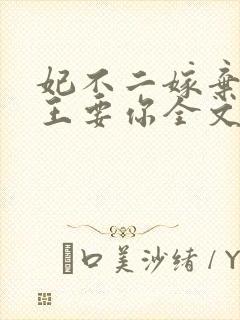 妃不二嫁弃
王要你全文
口美沙绪/Y